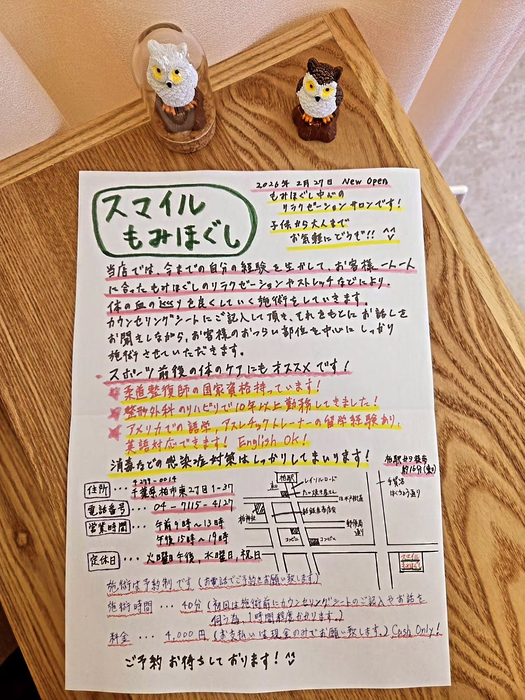 2026年 2月27日 New Open
スマイル
もみほぐし
もみほぐし中心の
リラクゼーションサロンです!
子供から大人まで
お気軽にどうぞ!! ^^
当店では、今までの自分の経験を生かして、お客様一人一人
に合ったもみほぐしのリラクゼーションやストレッチなどにより、
体の血の巡りを良くしていく施術をしていきます。
カウンセリングシートにご記入して頂き、それをもとにお話しを
お聞きしながら、お客様のおつらい部位を中心にしっかり
施術させていただきます。
スポーツ前後の体のケアにもオススメです!
★柔道整復師の国家資格持っています!
★整形外科のリハビリで10年以上勤務してきました!
★アメリカでの語学、アスレチックトレーナーの留学経験あり、
英語対応できます! English OK!
消毒などの感染症対策はしっかりしてまいります!
住所 ・・・ 〒277-0014
千葉県柏市東2丁目1-37
電話番号 ・・・ 04-7115-4127
営業時間 ・・・ 午前9時〜13時
午後15時〜19時
定休日 ・・・ 火曜日午後、水曜日、祝日
柏駅から徒歩
約16分(東口)
柏駅
東口
レイソルロード
柏神社
郵便局
コンビニ
スマイル
もみほぐし
施術は予約制です(お電話でご予約をお願い致します)
施術時間 ・・・ 40分(初回は施術前にカウンセリングシートのご記入やお話を
伺う為、1時間程度かかります。)
料金 ・・・ 4,000円(お支払いは現金のみでお願い致します。) Cash Only!
ご予約 お待ちしております! ^^